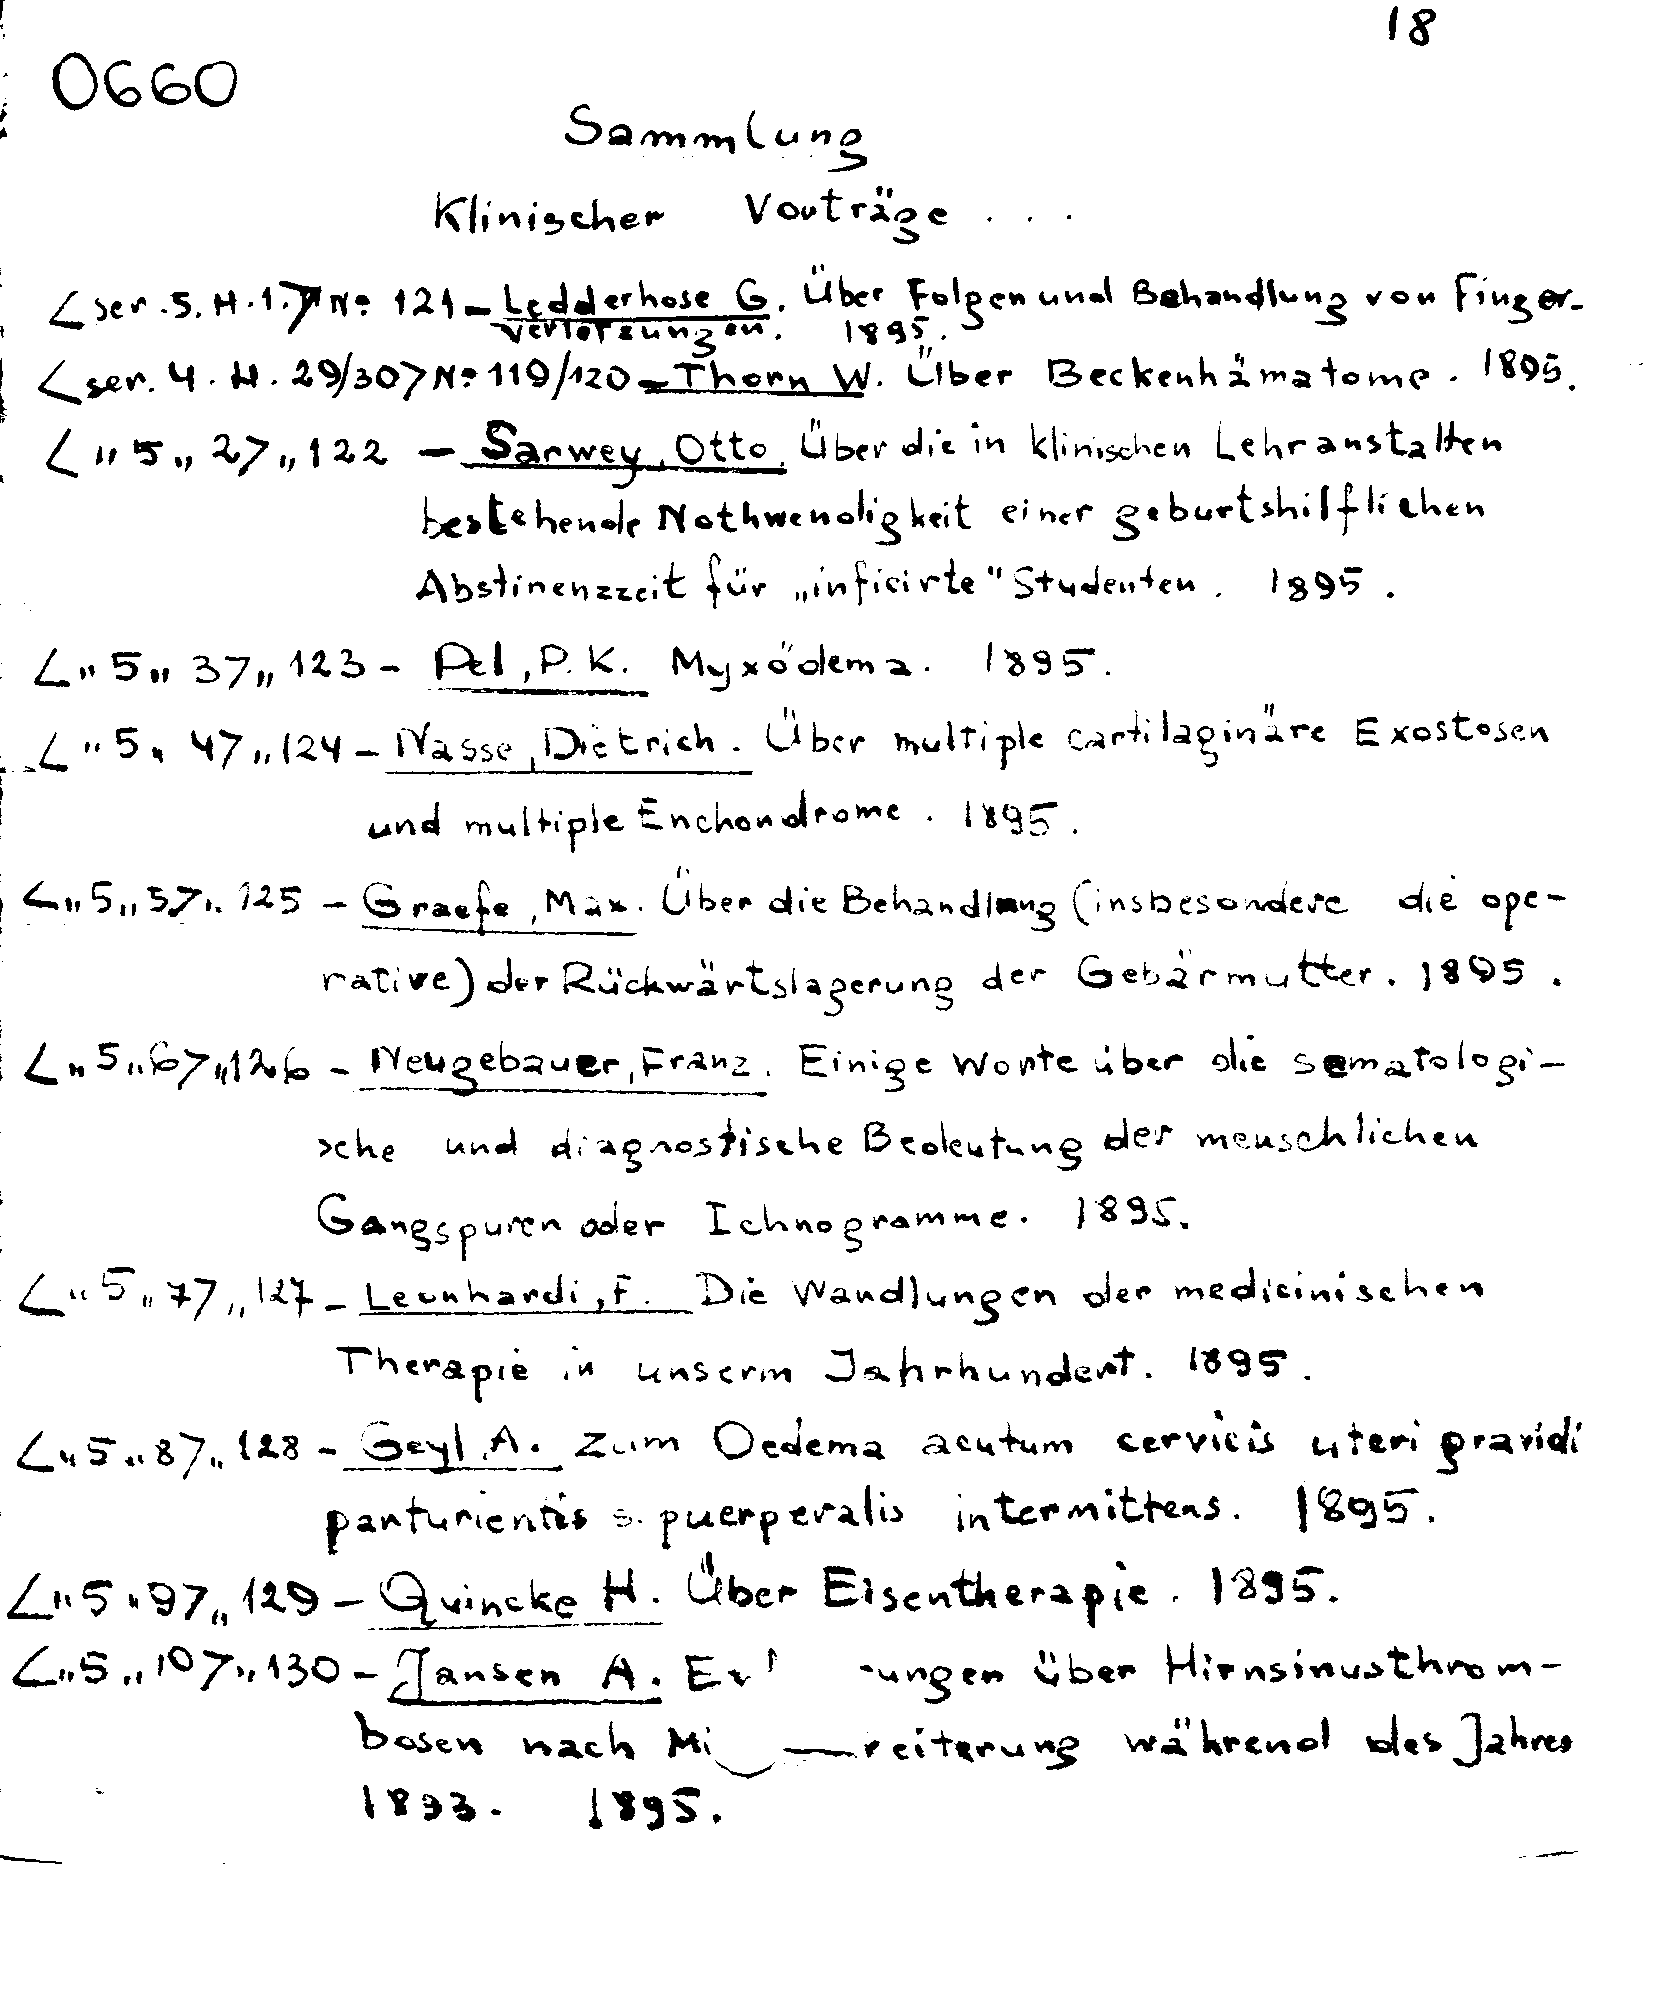 18
0660
Sammlung
Klinischer Vorträge . . .
<ser. 5. H. 1.> No 121 - Ledderhose G. Über Folgen und Behandlung von Finger-
verletzungen. 1895.
<ser. 4. H. 29/30> No 119/120 - Thorn W. Über Beckenhämatome. 1895.
<„ 5 „ 2> „ 122 - Sarwey, Otto. Über die in klinischen Lehranstalten
bestehende Nothwendigkeit einer geburtshilflichen
Abstinenzzeit für „inficirte" Studenten. 1895.
<„ 5 „ 3> „ 123 - Pel, P. K. Myxödema. 1895.
<„ 5 „ 4> „ 124 - Nasse, Dietrich. Über multiple cartilaginäre Exostosen
und multiple Enchondrome. 1895.
<„ 5 „ 5> „ 125 - Graefe, Max. Über die Behandlung (insbesondere die ope-
rative) der Rückwärtslagerung der Gebärmutter. 1895.
<„ 5 „ 6> „ 126 - Neugebauer, Franz. Einige Worte über die sematologi-
sche und diagnostische Bedeutung der menschlichen
Gangspuren oder Ichnogramme. 1895.
<„ 5 „ 7> „ 127 - Leonhardi, F. Die Wandlungen der medicinischen
Therapie in unserm Jahrhundert. 1895.
<„ 5 „ 8> „ 128 - Geyl, A. Zum Oedema acutum cervicis uteri gravidi
parturientis s. puerperalis intermittens. 1895.
<„ 5 „ 9> „ 129 - Quincke H. Über Eisentherapie. 1895.
<„ 5 „ 10> „ 130 - Jansen A. über Hirnsinusthrom-
bosen nach während des Jahres
1893. 1895.